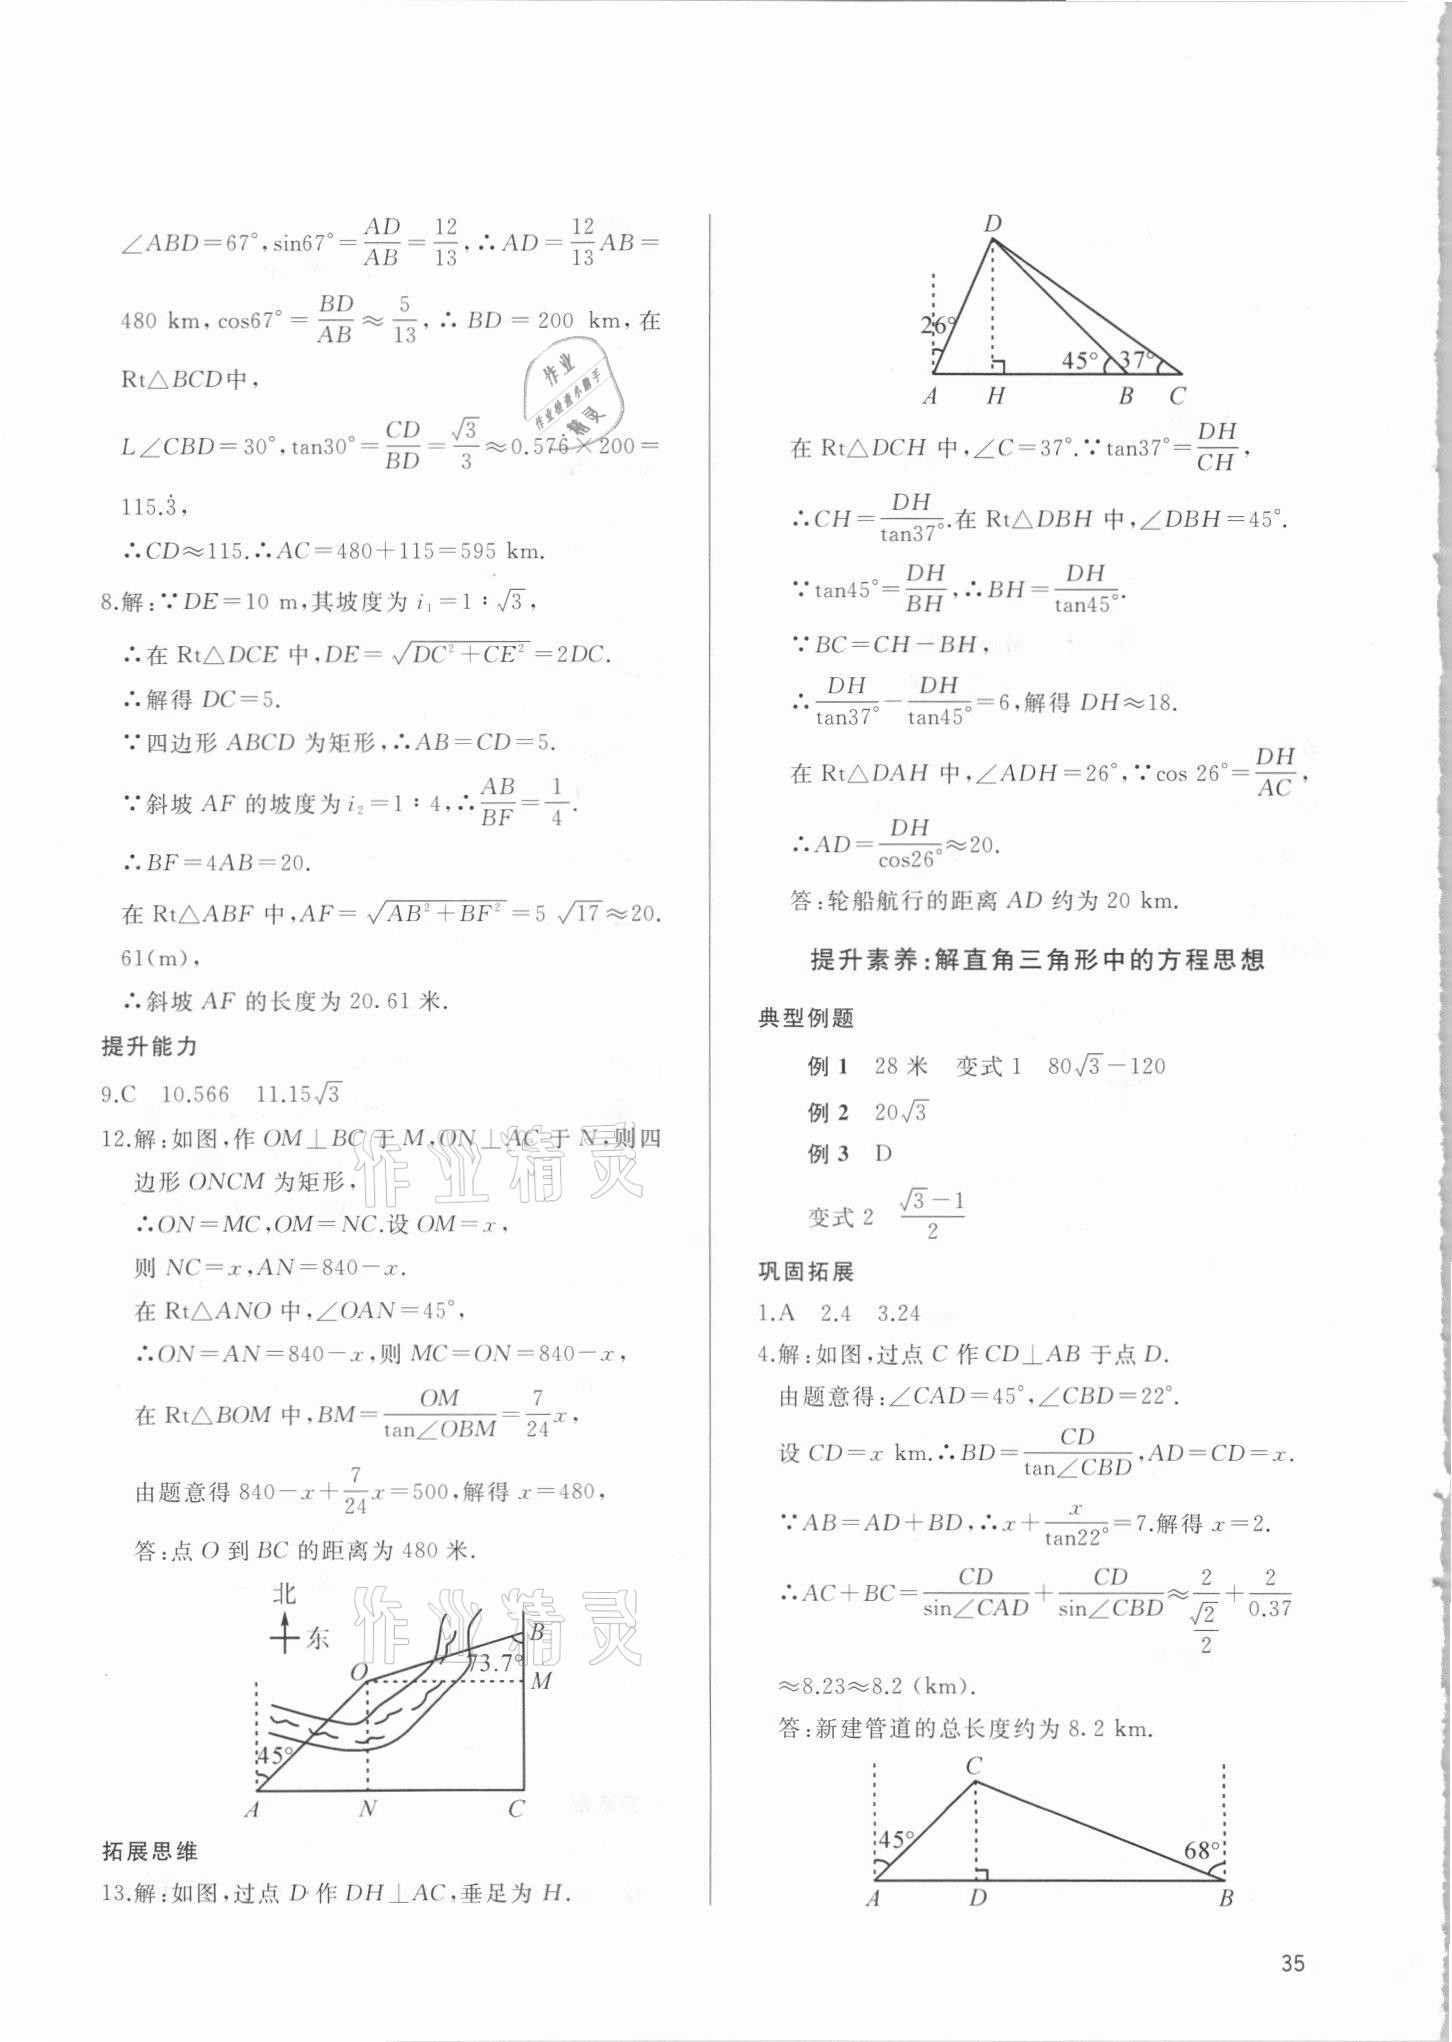 ∠ABD=67°,sin67°=AD/AB=12/13,∴AD=12/13AB=
480 km,cos67°=BD/AB≈5/13,∴BD=200 km,在
Rt△BCD中,
L∠CBD=30°,tan30°=CD/BD=√3/3≈0.576×200=
115.3̇,
∴CD≈115.∴AC=480+115=595 km.
8.解:∵DE=10 m,其坡度为i₁=1∶√3,
∴在Rt△DCE中,DE=√(DC²+CE²)=2DC.
∴解得DC=5.
∵四边形ABCD为矩形,∴AB=CD=5.
∵斜坡AF的坡度为i₂=1∶4,∴AB/BF=1/4.
∴BF=4AB=20.
在Rt△ABF中,AF=√(AB²+BF²)=5√17≈20.
61(m),
∴斜坡AF的长度为20.61米.
提升能力
9.C 10.566 11.15√3
12.解:如图,作OM⊥BC于M,ON⊥AC于N,则四
边形ONCM为矩形,
∴ON=MC,OM=NC.设OM=x,
则NC=x,AN=840-x.
在Rt△ANO中,∠OAN=45°,
∴ON=AN=840-x,则MC=ON=840-x,
在Rt△BOM中,BM=OM/tan∠OBM=7/24x,
由题意得840-x+7/24x=500,解得x=480,
答:点O到BC的距离为480米.
北
东
B
O
73.7°
M
45°
A N C
拓展思维
13.解:如图,过点D作DH⊥AC,垂足为H.
D
26°
45° 37°
A H B C
在Rt△DCH中,∠C=37°.∵tan37°=DH/CH,
∴CH=DH/tan37°.在Rt△DBH中,∠DBH=45°.
∵tan45°=DH/BH,∴BH=DH/tan45°.
∵BC=CH-BH,
∴DH/tan37°-DH/tan45°=6,解得DH≈18.
在Rt△DAH中,∠ADH=26°,∵cos 26°=DH/AC,
∴AD=DH/cos26°≈20.
答:轮船航行的距离AD约为20 km.
提升素养:解直角三角形中的方程思想
典型例题
例1 28米 变式1 80√3-120
例2 20√3
例3 D
变式2 (√3-1)/2
巩固拓展
1.A 2.4 3.24
4.解:如图,过点C作CD⊥AB于点D.
由题意得:∠CAD=45°,∠CBD=22°.
设CD=x km.∴BD=CD/tan∠CBD,AD=CD=x.
∵AB=AD+BD,∴x+x/tan22°=7.解得x=2.
∴AC+BC=CD/sin∠CAD+CD/sin∠CBD≈2/(√2/2)+2/0.37
≈8.23≈8.2(km).
答:新建管道的总长度约为8.2 km.
C
45°
68°
A D B
35
作业
作业检查小助手
精灵
作业精灵
作业精灵